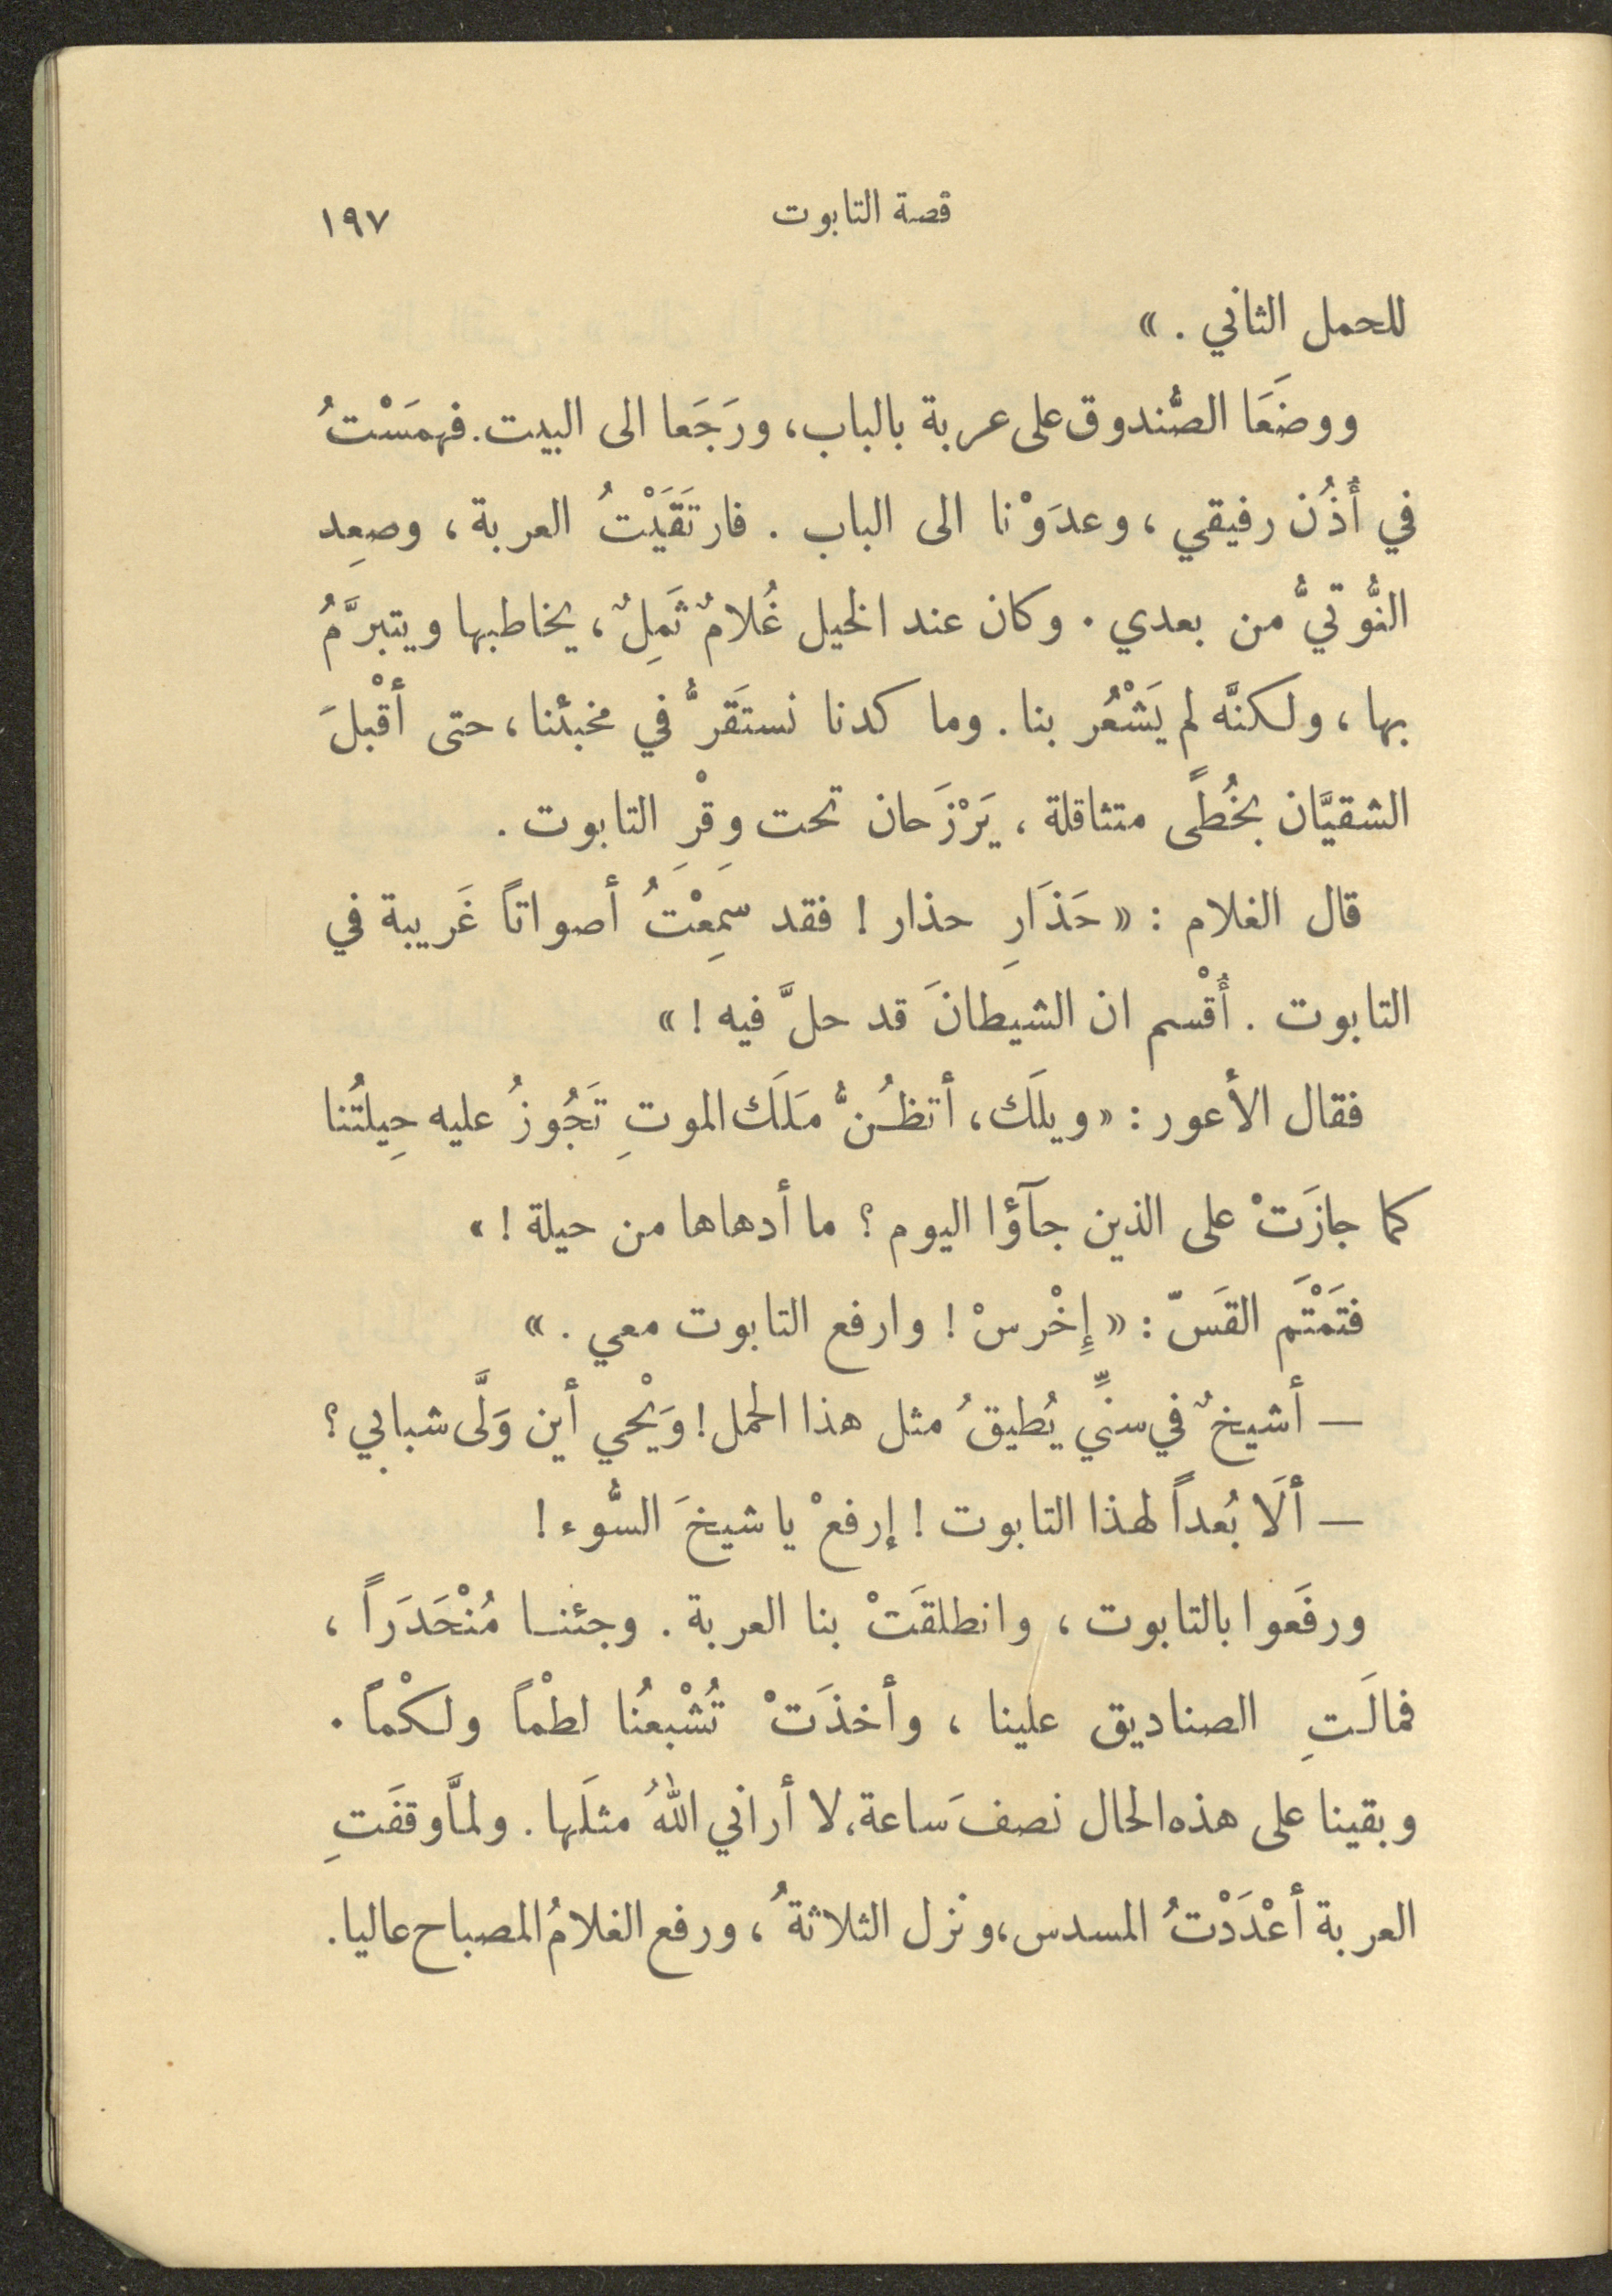 قصة التابوت ١٩٧
للحمل الثاني . »
ووضَعَا الصُّندوق على عربة بالباب، ورَجَعَا الى البيت. فهمَسْتُ
في أُذُن رفيقي ، وعدَوْنا الى الباب . فارتَقَيْتُ العربة ، وصعِد
النُّوتيُّ من بعدي . وكان عند الخيل غُلامٌ ثَمِلٌ ، يخاطبها ويتبرَّمُ
بها ، ولكنَّه لم يَشْعُر بنا . وما كدنا نستَقرُّ في مخبئنا ، حتى أقْبلَ
الشقيَّان بخُطًى متثاقلة ، يَرْزَحان تحت وِقْرِ التابوت .
قال الغلام : « حَذَارِ حذار ! فقد سَمِعْتُ أصواتاً غَريبة في
التابوت . أُقْسم ان الشيطانَ قد حلَّ فيه ! »
فقال الأعور : « ويلَك ، أتظُنُّ مَلَك الموتِ تَجُوزُ عليه حِيلتُنا
كما جازَتْ على الذين جآؤا اليوم ؟ ما أدهاها من حيلة ! »
فتَمْتَم القَسّ : « إِخْرسْ ! وارفع التابوت معي . »
— أشيخٌ في سنِّي يُطيقُ مثل هذا الحمل ! وَيْحي أين وَلَّى شبابي ؟
— ألَا بُعداً لهذا التابوت ! إرفعْ يا شيخَ السُّوء !
ورفَعوا بالتابوت ، وانطلقَتْ بنا العربة . وجئنا مُنْحَدَراً ،
فمالَتِ الصناديق علينا ، وأخذَتْ تُشْبعُنا لطْماً ولكْماً .
وبقينا على هذه الحال نصفَ ساعة، لا أراني اللهُ مثلَها . ولمَّا وقفَتِ
العربة أعْدَدْتُ المسدس، ونزل الثلاثةُ ، ورفع الغلامُ المصباح عاليا .